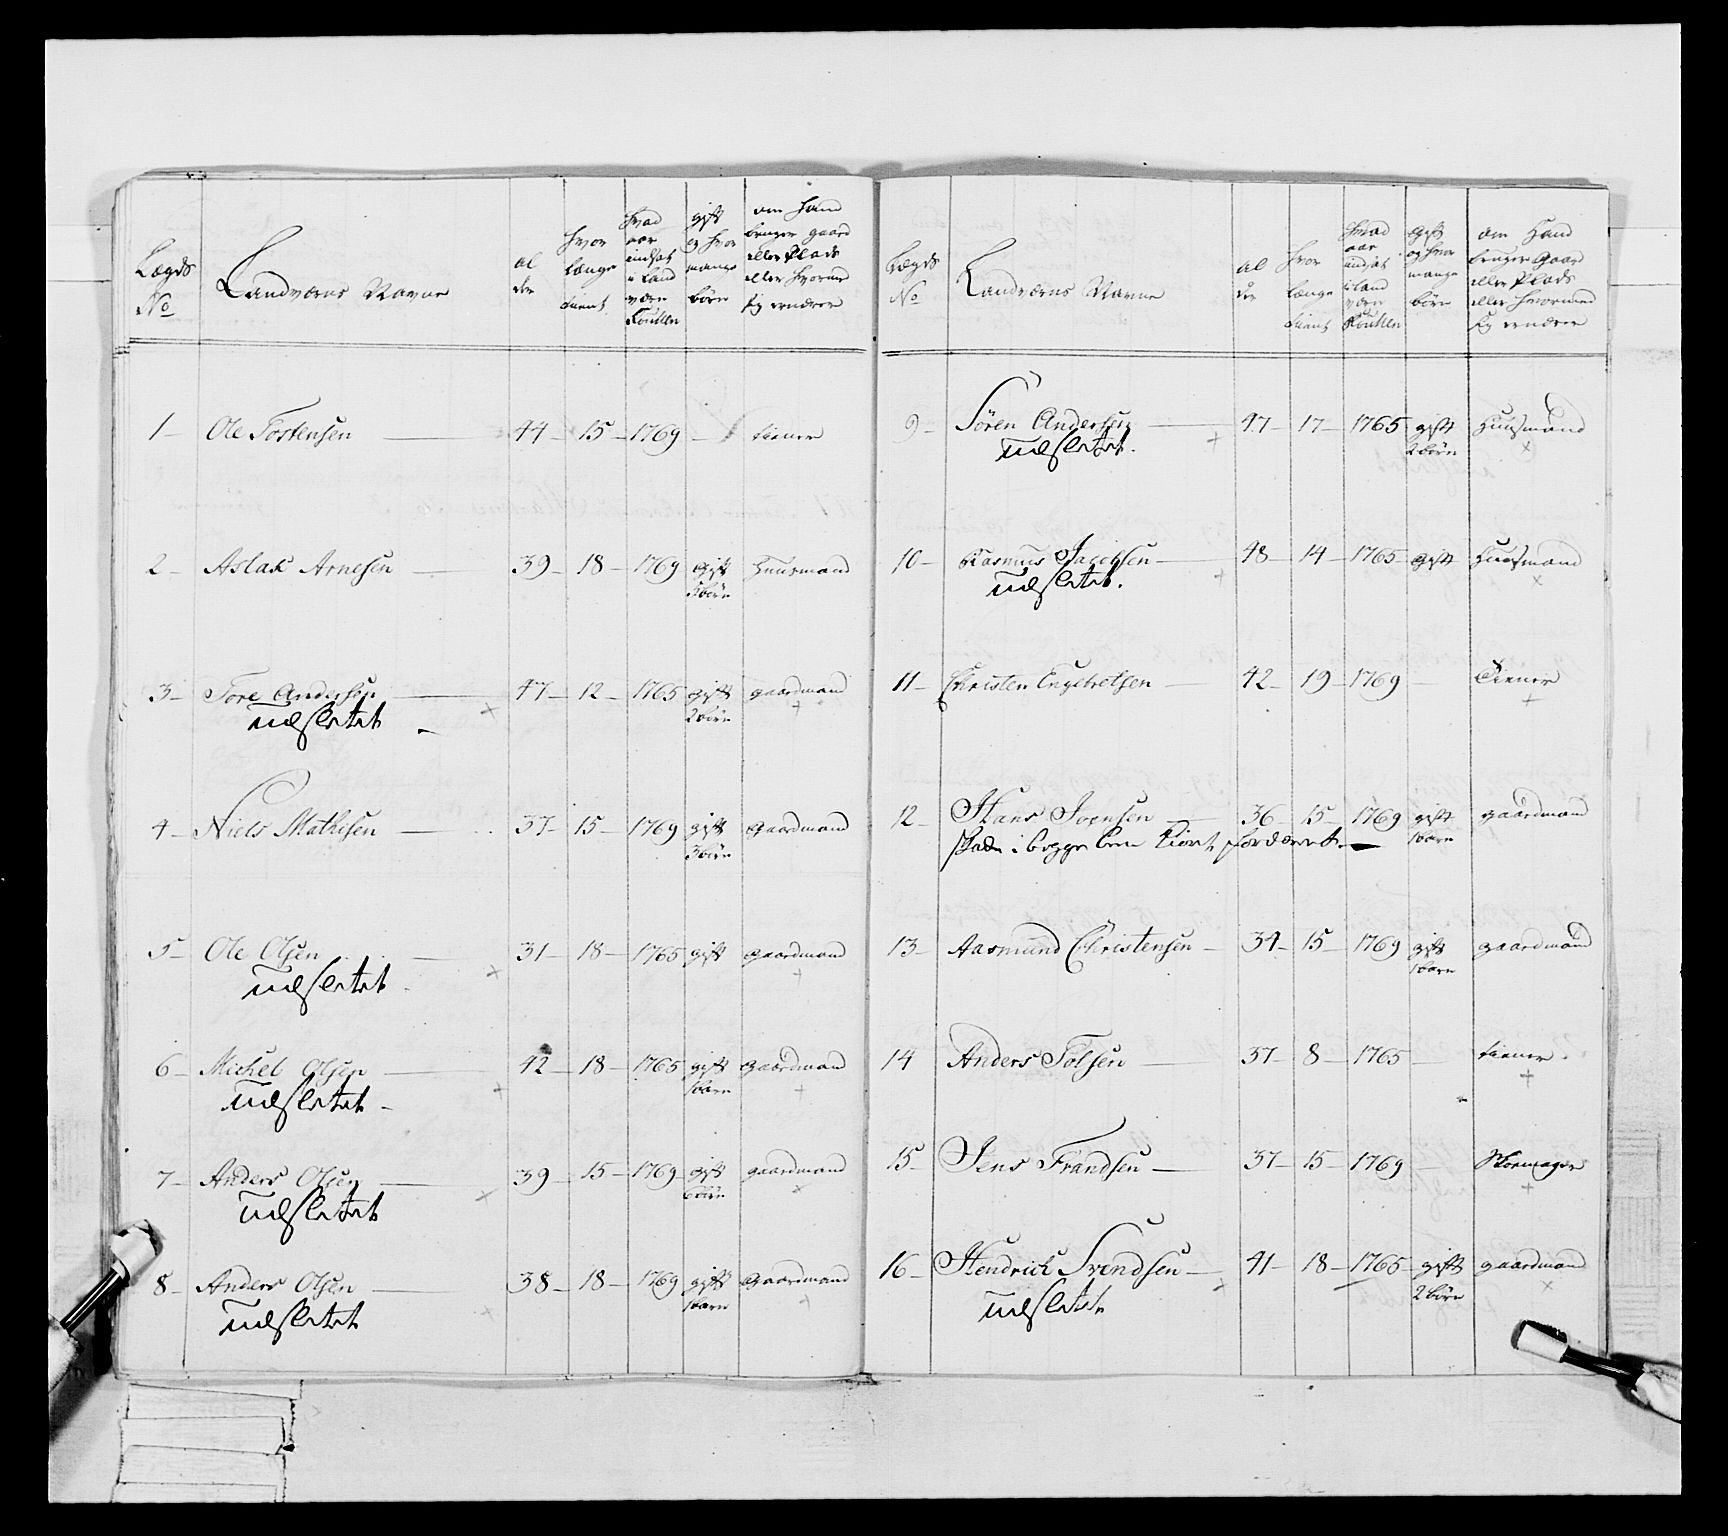 Lægds No | Landværns Navne | al der | hvor længe tient | hvad aar indsat i Land værn Roullen | gift og hvor mange børn | om hand bruger gaard eller Plads eller hvormed sig ernærer
1 – Ole Torstensen — 44 – 15 – 1769 – tiener
2 – Aslak Arnesen — 39 – 18 – 1769 gift huusmand
3 børn
3 – Tore Andersen — 47 – 12 – 1765 gift gaardmand
udsletet 2 børn
4 – Niels Mathisen — 37 – 15 – 1769 gift gaardmand
3 børn
5 – Ole Olsen — 31 – 18 – 1765 gift gaardmand
udsletet
6 – Michel Olsen — 42 – 18 – 1765 gift gaardmand
udsletet 1 barn
7 – Anders Olsen — 39 – 15 – 1769 gift gaardmand
udsletet 6 børn
8 – Anders Olsen — 38 – 18 – 1769 gift gaardmand
udsletet 1 barn
Lægds No | Landværns Navne | al der | hvor længe tient | hvad aar indsat i Land værn Roullen | gift og hvor mange børn | om hand bruger Gaard eller Plads eller hvormed sig ernærer
9 – Sören Andersen — 47 – 17 – 1765 gift huusmand
udsletet. 2 børn
10 – Rasmus Jacobsen — 48 – 14 – 1765 gift huusmand
udsletet.
11 – Christen Engebretsen — 42 – 19 – 1769 – tiener
12 – Hans Svensen — 36 – 15 – 1769 gift gaardmand
skade i begge been 1 barn
13 – Aasmund Christensen – 34 – 15 – 1769 gift gaardmand
1 barn
14 Anders Tolsen — 37 – 8 – 1765 tiener
15 – Jens Frandsen — 37 – 15 – 1769 – Skomager
16 – Hendrich Svendsen — 41 – 18 – 1765 – gift gaardmand
udsletet 2 børn